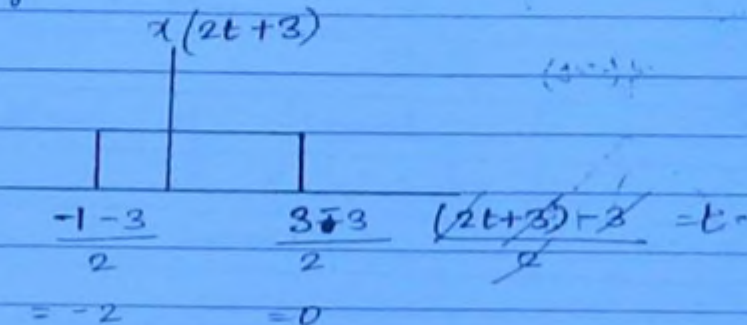 x(2t+3)
-1-3/2 3-3/2 (2t+3)-3/2 =t
= -2 =0